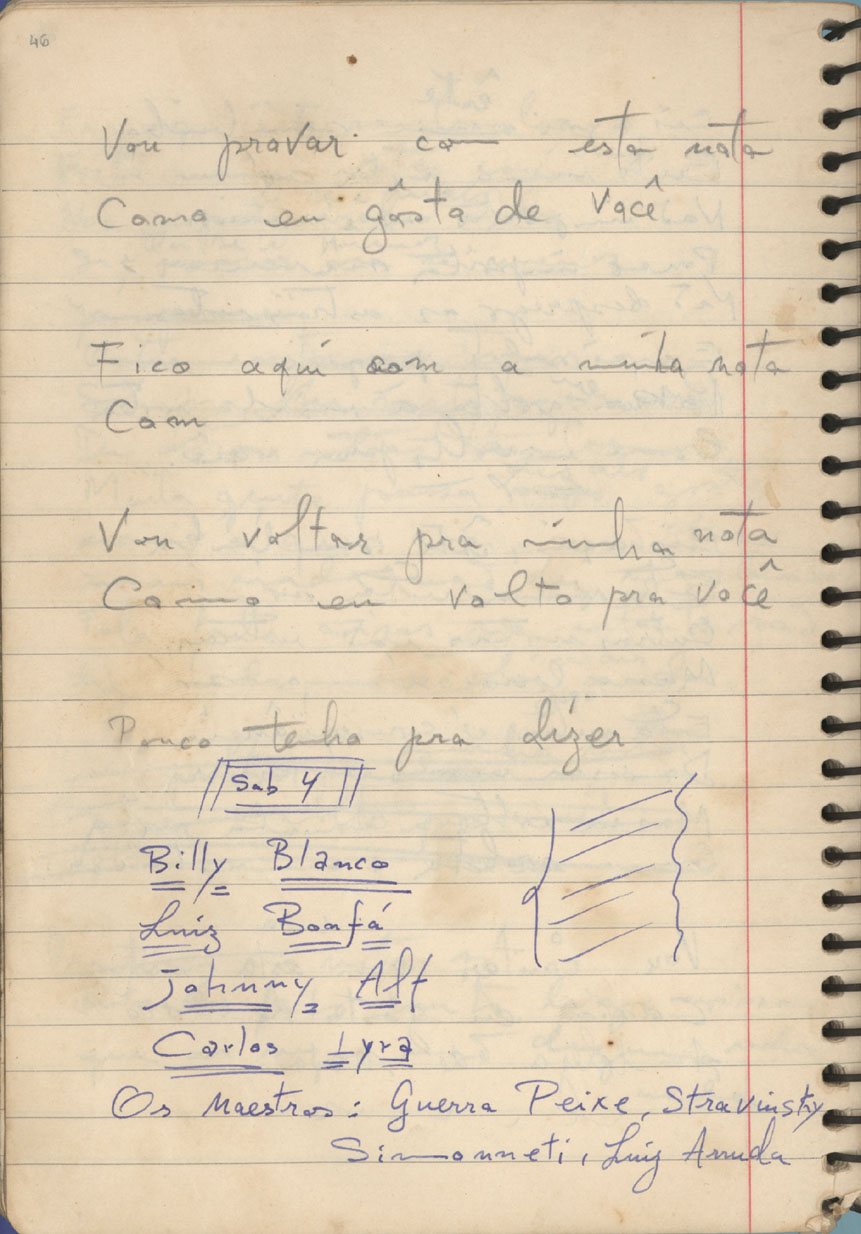 46
Vou provar com esta nota
Como eu gôsto de você
Fico aqui com a minha nota
Com
Vou voltar pra minha nota
Como eu volto pra você
Pouco tenho pra dizer
Sab 4
Billy Blanco
Luiz Bonfá
Johnny Alf
Carlos Lyra
Os Maestros: Guerra Peixe, Stravinsky
Simonneti, Luiz Arruda